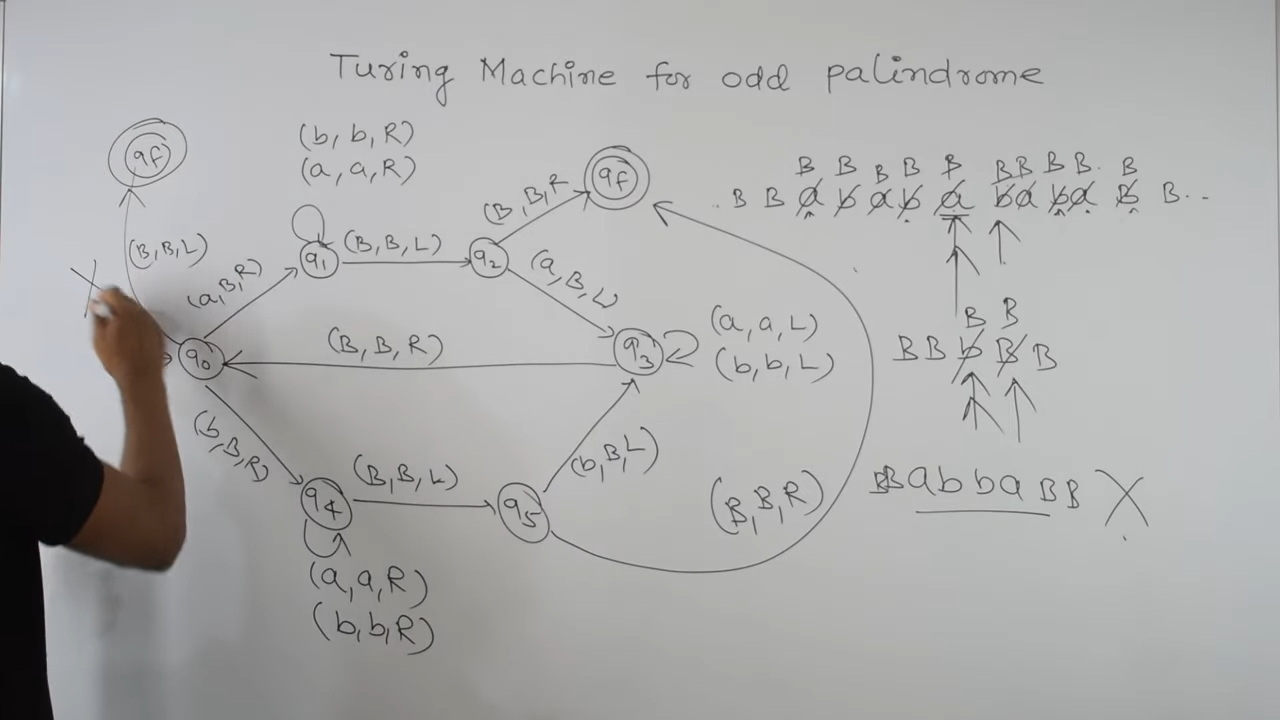 Turing Machine for odd palindrome
qf
(B, B, L)
(b, b, R)
(a, a, R)
q1
(B, B, L)
q2
(B, B, R
qf
(a, B, R)
(a, B, L)
q0
(B, B, R)
q3
(a, a, L)
(b, b, L)
(b, B, R)
q4
(B, B, L)
q5
(b, B, L)
(B, B, R)
(a, a, R)
(b, b, R)
B B B B B B B B B B
.. B B a b a b a b a b a B B...
B B
B B b B B
BB a b b a B B X